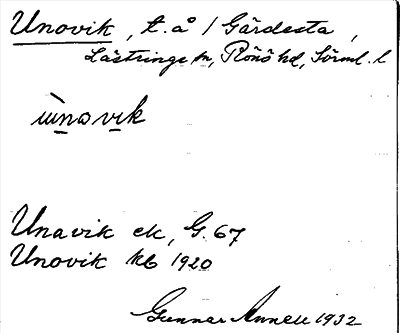 Unovik, t. å / Gärdesta,
Lästringe sn, Rönö hd, Sörml. l
ùnovik
Unavik ek, G. 67
Unovik kb 1920
Gunnar Annell 1932